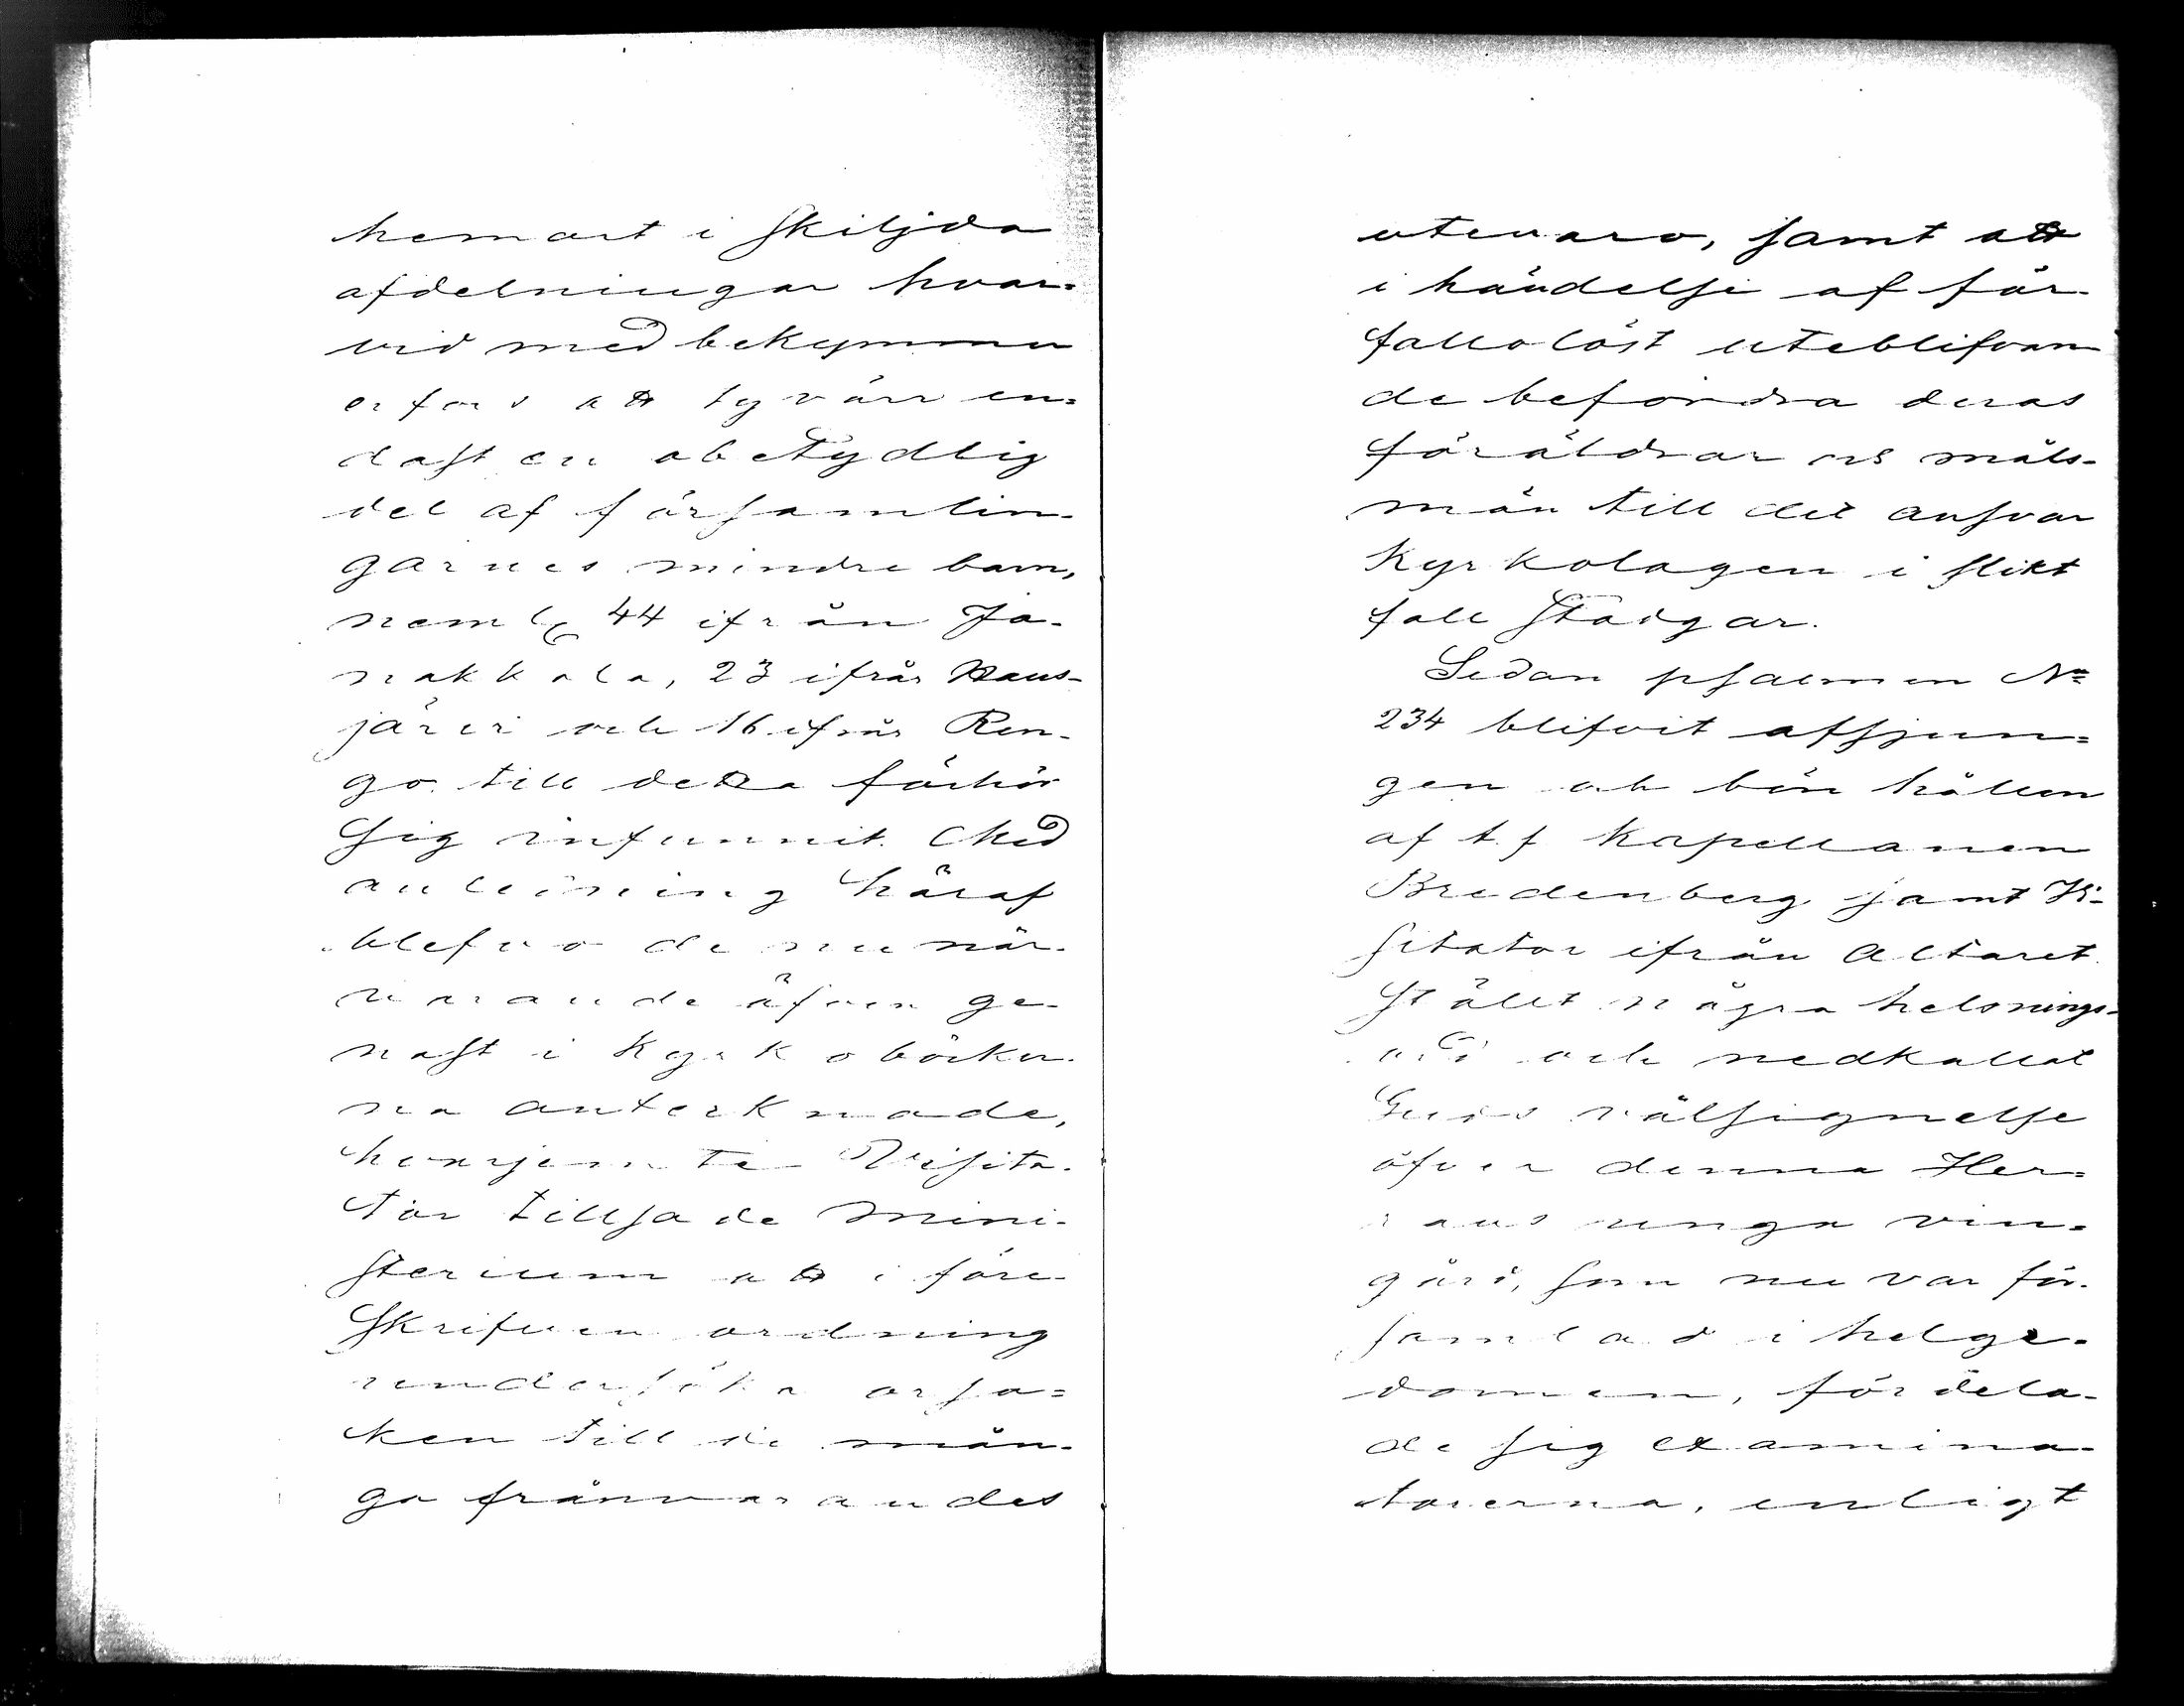 hemort i skiljda
afdelningar hvar-
vid med bekymmer
erfors att tyvärr en-
dast en obetydlig
del af församlin-
garnes mindre barn,
neml. 44 ifrån Ja-
nakkala, 23 ifrån Haus-
järvi och 16 ifrån Ren-
go till detta förhör
sig infunnit. Med
anledning häraf
blefvo de nu när-
varande äfven ge-
nast i Kyrkoböcker-
na antecknade,
hvarjemte Visita-
tor tillsade Mini-
sterium att i före-
skrifven ordning
undersöka orsa-
ken till de mån-
ga frånvarandes
utevaro, samt att
i händelse af för-
fallolöst uteblifvan-
de befordra deras
föräldrar och måls-
män till det ansvar
Kyrkolagen i slikt
fall stadgar.
Sedan psalmen No
234 blifvit afsjun-
gen och bön hållen
af t.f. Kapellanen
Bredenberg samt Vi-
sitator ifrån altaret
ställt några helsnings-
ord och nedkallat
Guds välsignelse
öfver denna Her-
rans unga vin-
gård, som nu var för-
samlad i helge-
domen, fördela-
de sig examina-
torerna, enligt